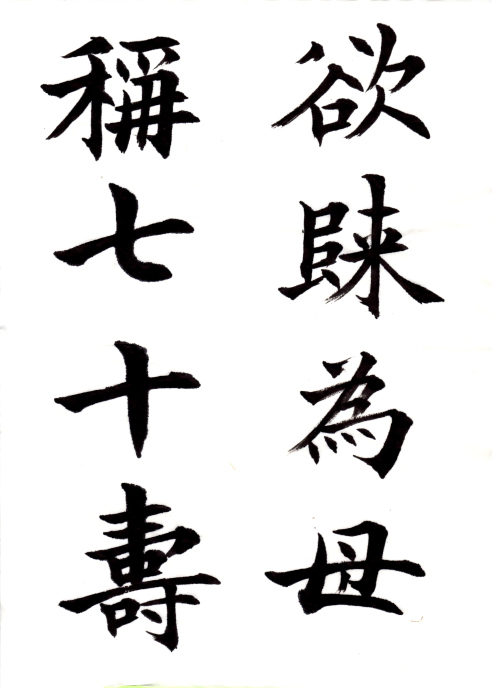 欲㱕為母
稱七十壽